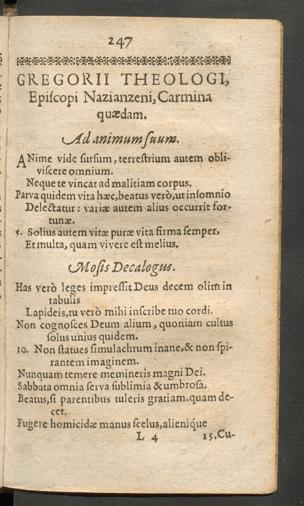 247
GREGORII THEOLOGI,
Epiſcopi Nazianzeni, Carmina
quædam.
Ad animum ſuum.
ANime vide ſurſum, terreſtrium autem obli-
viſcere omnium.
Neque te vincat ad malitiam corpus.
Parva quidem vita hæc, beatus verò, ut inſomnio
Delectatur: variæ autem alius occurrit for-
tunæ.
5. Solius autem vitæ puræ vita firma ſemper,
Et multa, quam vivere eſt melius.
Moſis Decalogus.
Has verò leges impreſſit Deus decem olim in
tabulis
Lapideis, tu verò mihi inſcribe tuo cordi.
Non cognoſces Deum alium, quoniam cultus
ſolus unius quidem.
10. Non ſtatues ſimulachrum inane, & non ſpi-
rantem imaginem.
Nunquam temere memineris magni Dei.
Sabbata omnia ſerva ſublimia & umbroſa.
Beatus, ſi parentibus tuleris gratiam, quam de-
cet.
Fugere homicidæ manus ſcelus, alienique
L 4 15. Cu-